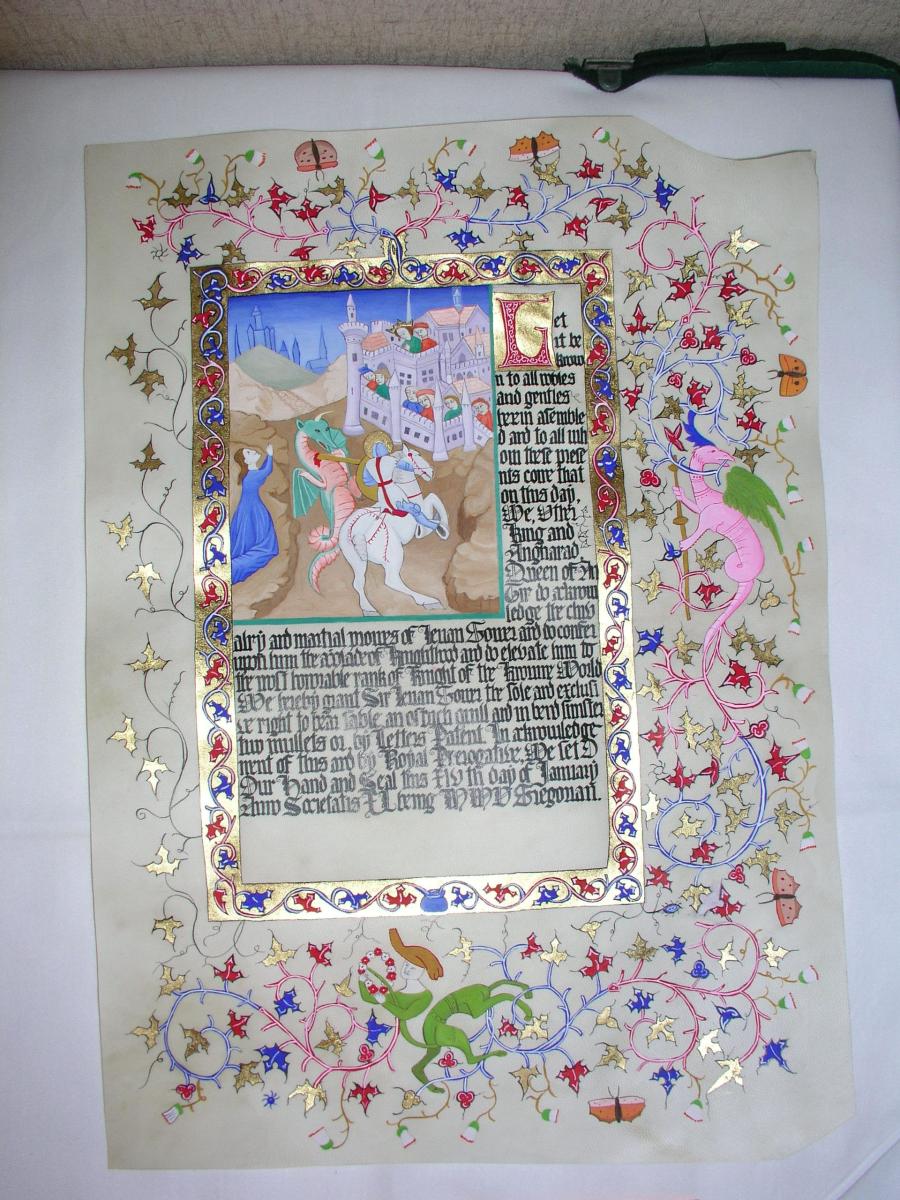 Let
it be
know
n to all nobles
and gentles
here in asemble
d and to all wh
om these prese
nts come that
on this day,
We, Uther
King and
Angharad
Queen of An
Tir do acknow
ledge the chiv
alry and martial prowes of Ieuan Gower and do confer
upon him the accolade of Knighthood and do elevate him to
the most honorable rank of Knight of the Knowne World
We hereby grant Sir Ieuan Gower the sole and exclusi
ve right to bear Sable, an ostrich quill and in bend sinister
two mullets or, by Letters Patent In acknowledge
ment of this and by Royal Prerogative, We set
Our Hand and Seal this XIV th day of January
Anno Societatis XL being MMVI Gregorian.